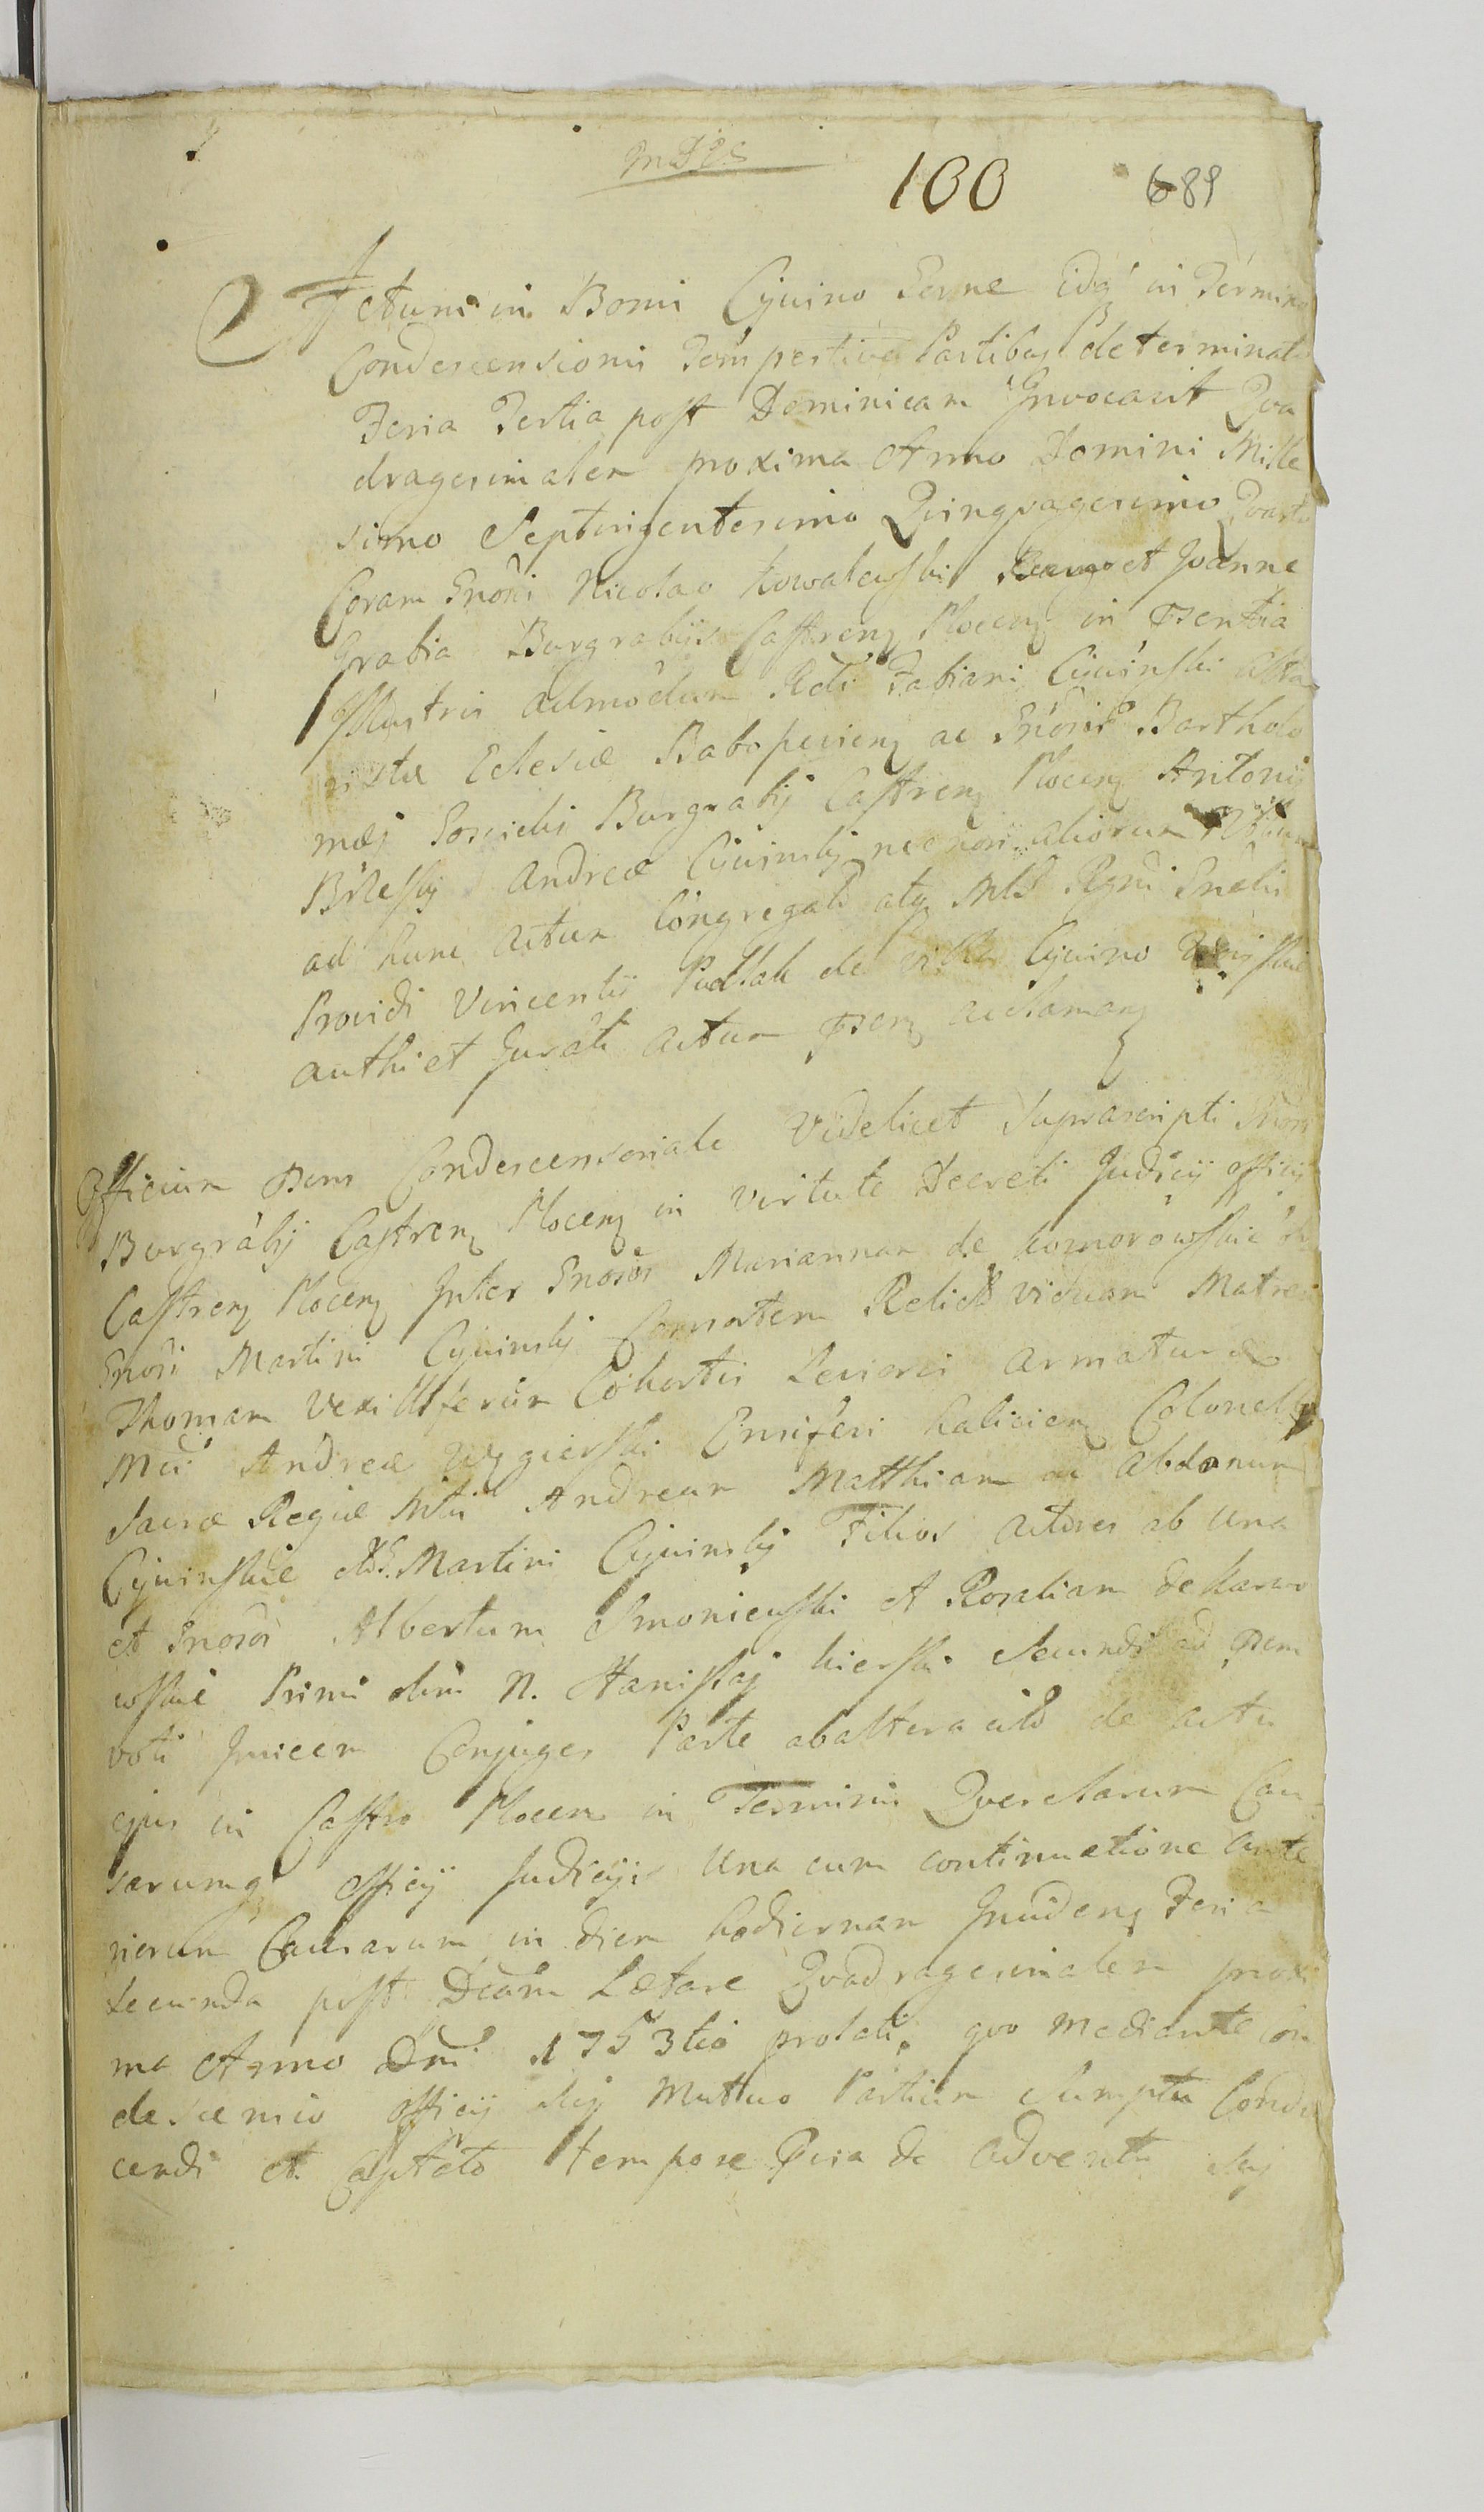 100 689
Actum in Bonis Cywino Terrae Eidq in Termino
Condescensionis Tempestive Partibus determinato
Feria Tertia post Dominicam Invocavit Qua
dragesimalem proxima Anno Domini Mille
simo Septingentesimo Quinquagesimo Quarto
Coram Gnosi Nicolao Kowalewski et Joanne
Grabia Burgrabiis Castrens Plocens in Psentia
Illustris admodum Rdi Fabiani Cywinski Alta
ristae Eclesiae ac Gnosor Bartholo
maej Burgrabij Castrens Plocens Antonij
Andreae Cywinskj necnon aliorum
ad hunc actum Congregati atq Mtis Rgni Gnalis
Providi Vincentij de villa Cywino
authi et Jurati actum psens aclamans
Officium psens Condescensoriale Videlicet Suprascripti Gnosi
Burgrabij Castrens Plocens in Virtute Decreti Judicij officij
Castrens Plocens Inter Gnosos Mariannam de Komorowskie
Gnosi Martini Cywinskj Consortem Relict viduam Matrem
Thomam Vexilliferum Cohortis Levioris armaturae
Mci Andreae Węgierski Ensiferi haliciens Colonelli
Sacrae Regiae Mtis Andream Matthiam ac Abdonum
Cywinskie Martini Cywinskj Filios actores ab Una
et Gnosos Albertum Smoniewski et Rosaliam de Karwo
wskie Primi olim N. Stanislaj kierski Secundi ad psens
voti Invicem Conjuges Parte ab altera citos de actu
ejus in Castro Plocens in Terminis Querelarum Cau
sarumq officij Judicijs Una cum continuatione ante
riorum Causarum in diem hodiernam Incidens Feria
secunda post Dcam Laetare Quadragesimalem proxi
ma Anno Dni 1753tio prolati, quo mediante Con
descensio officij sui Mutuo Partium Sumptu Condu
cendi et Captato tempore de adventu suj